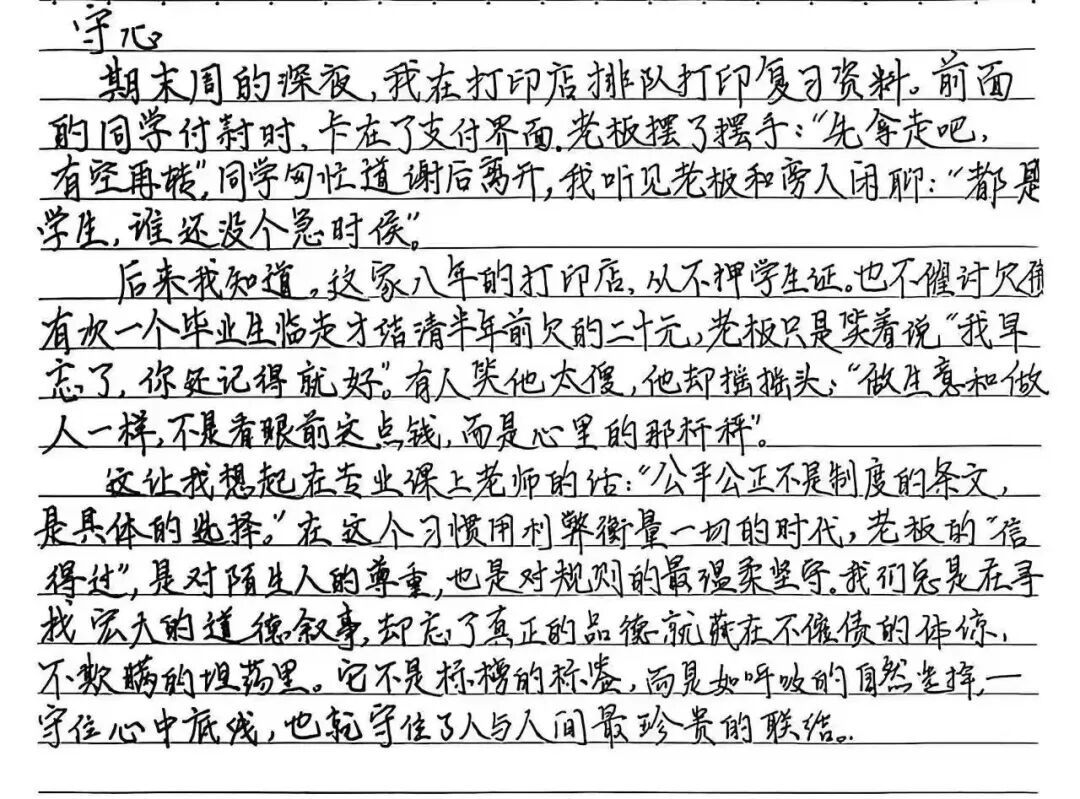 守心
期末周的深夜，我在打印店排队打印复习资料。前面
的同学付款时，卡在了支付界面。老板摆了摆手：“先拿走吧，
有空再转”，同学匆忙道谢后离开，我听见老板和旁人闲聊：“都是
学生，谁还没个急时候”。
后来我知道，这家八年的打印店，从不押学生证。也不催讨欠债
有次一个毕业生临走才结清半年前欠的二十元，老板只是笑着说“我早
忘了，你还记得就好”。有人笑他太傻，他却摇摇头：“做生意和做
人一样，不是看眼前这点钱，而是心里的那杆秤”。
这让我想起在专业课上老师的话：“公平公正不是制度的条文，
是具体的选择。”在这个习惯用利弊衡量一切的时代，老板的“信
得过”，是对陌生人的尊重，也是对规则的最温柔坚守。我们总是在寻
找宏大的道德叙事，却忘了真正的品德就藏在不催债的体谅，
不欺瞒的坦荡里。它不是标榜的标签，而是如呼吸的自然选择，一
守住心中底线，也就守住了人与人间最珍贵的联结。